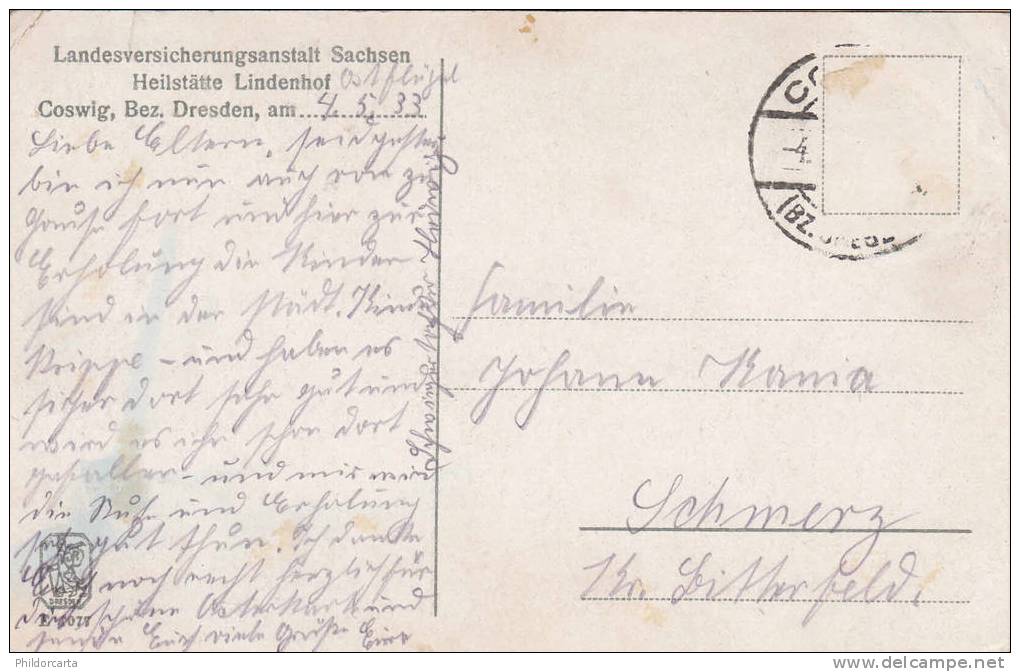 Landesversicherungsanstalt Sachsen
Heilstätte Lindenhof Ostflügel
Coswig, Bez. Dresden, am 4. 5. 33
Liebe Eltern, seid gestern
bin ich nun auch von zu
Hause fort und hier zur
Erholung die Kinder
sind in der Städt. Kinder
Krippe – und haben es
sicher dort sehr gut und
wird es ihr schon dort
gefallen – und mir wird
die Ruhe und Erholung
sehr gut thun. Ich danke
Euch noch recht herzlich für
die schöne Osterkarte und
sende Euch viele Grüße Eure
Familie
Johann Kania
Schmerz
Kr. Bitterfeld.
4.
BZ. DRESD
DRESDEN
Phildorcarta
www.delcampe.net